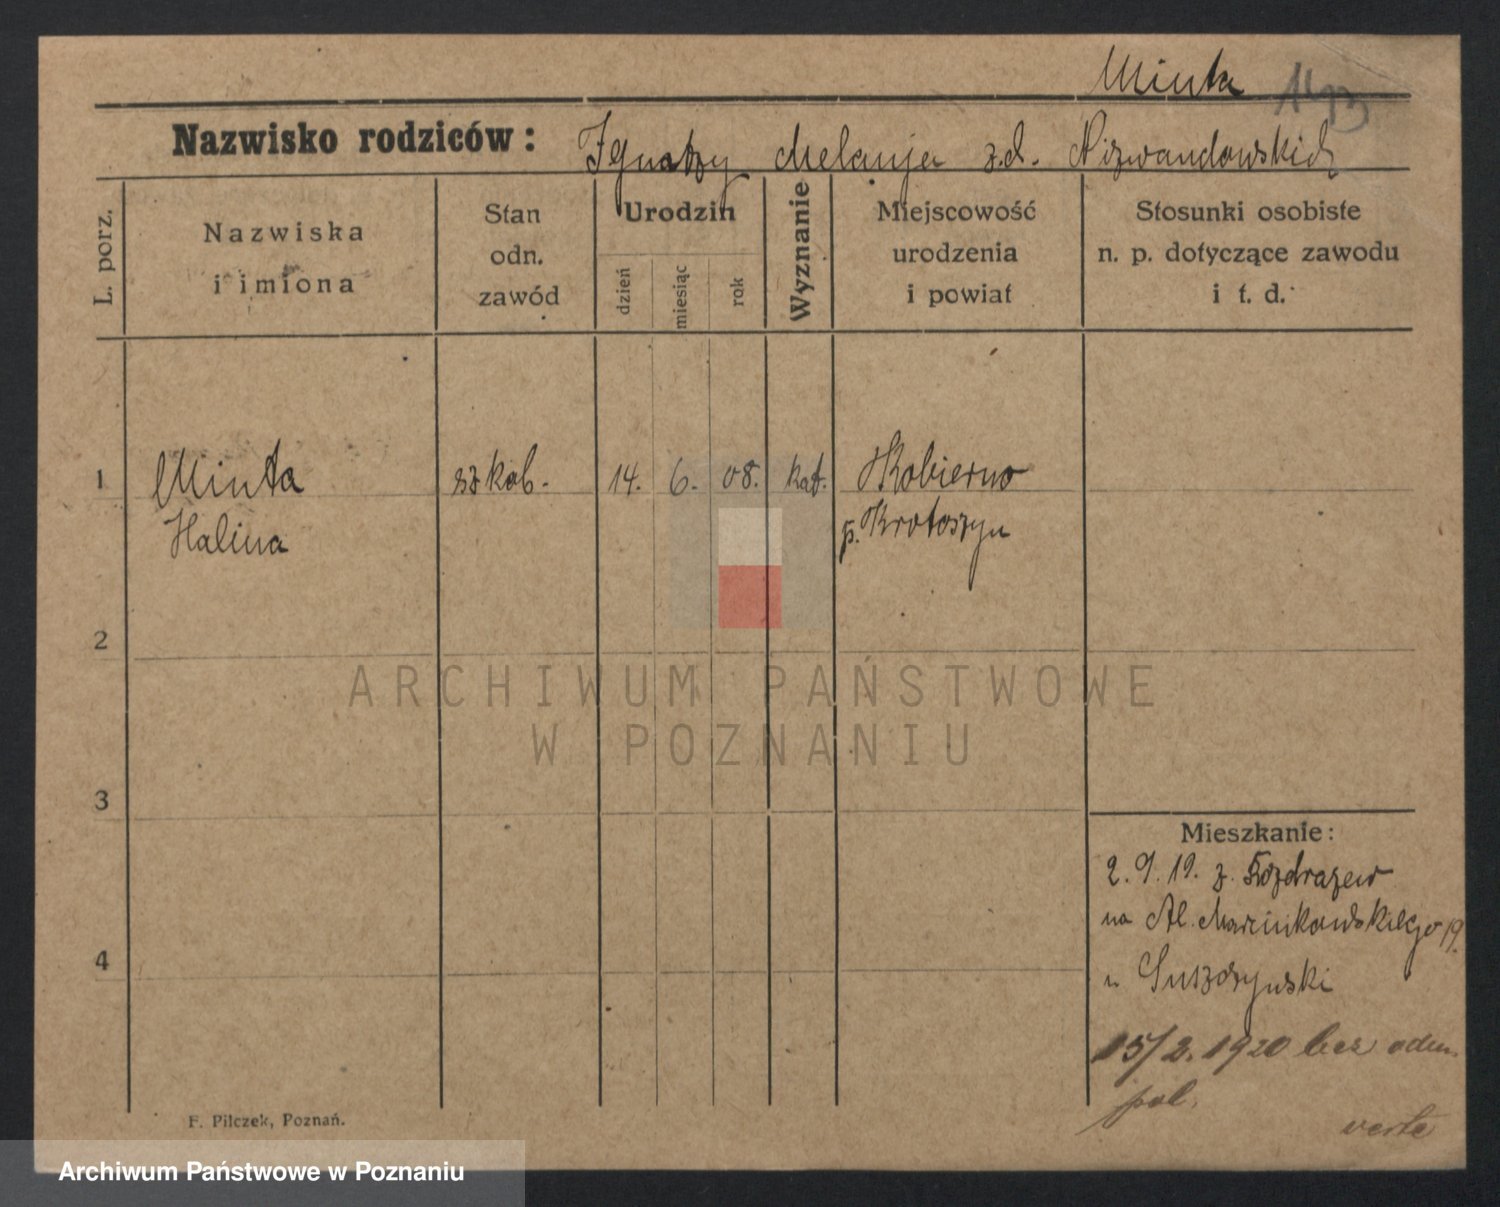 Minta
Nazwisko rodziców: Ignatzy Melanja z.d. Nizwandowskich
L. porz.
Nazwiska
i imiona
Stan
odn.
zawód
Urodzin
dzień
miesiąc
rok
Wyznanie
Miejscowość
urodzenia
i powiat
Stosunki osobiste
n. p. dotyczące zawodu
i t. d.
1 Minta szkol. 14. 6. 08. kat. Kobierno
Halina p. Krotoszyn
2
3
4
Mieszkanie:
2. 9. 19. z Rozdrazew
na Al. Marcinkowskiego 19.
u Suszczynski
15/2. 1920 bez odm.
pol.
verte
F. Pilczek, Poznań.
ARCHIWUM PAŃSTWOWE
W POZNANIU
Archiwum Państwowe w Poznaniu